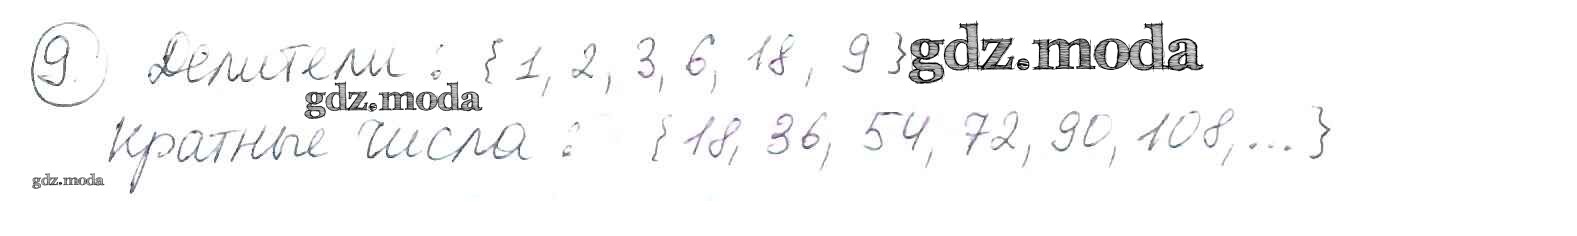 9. Делители: {1, 2, 3, 6, 18, 9} gdz.moda
gdz.moda
Кратные числа: {18, 36, 54, 72, 90, 108, ...}
gdz.moda